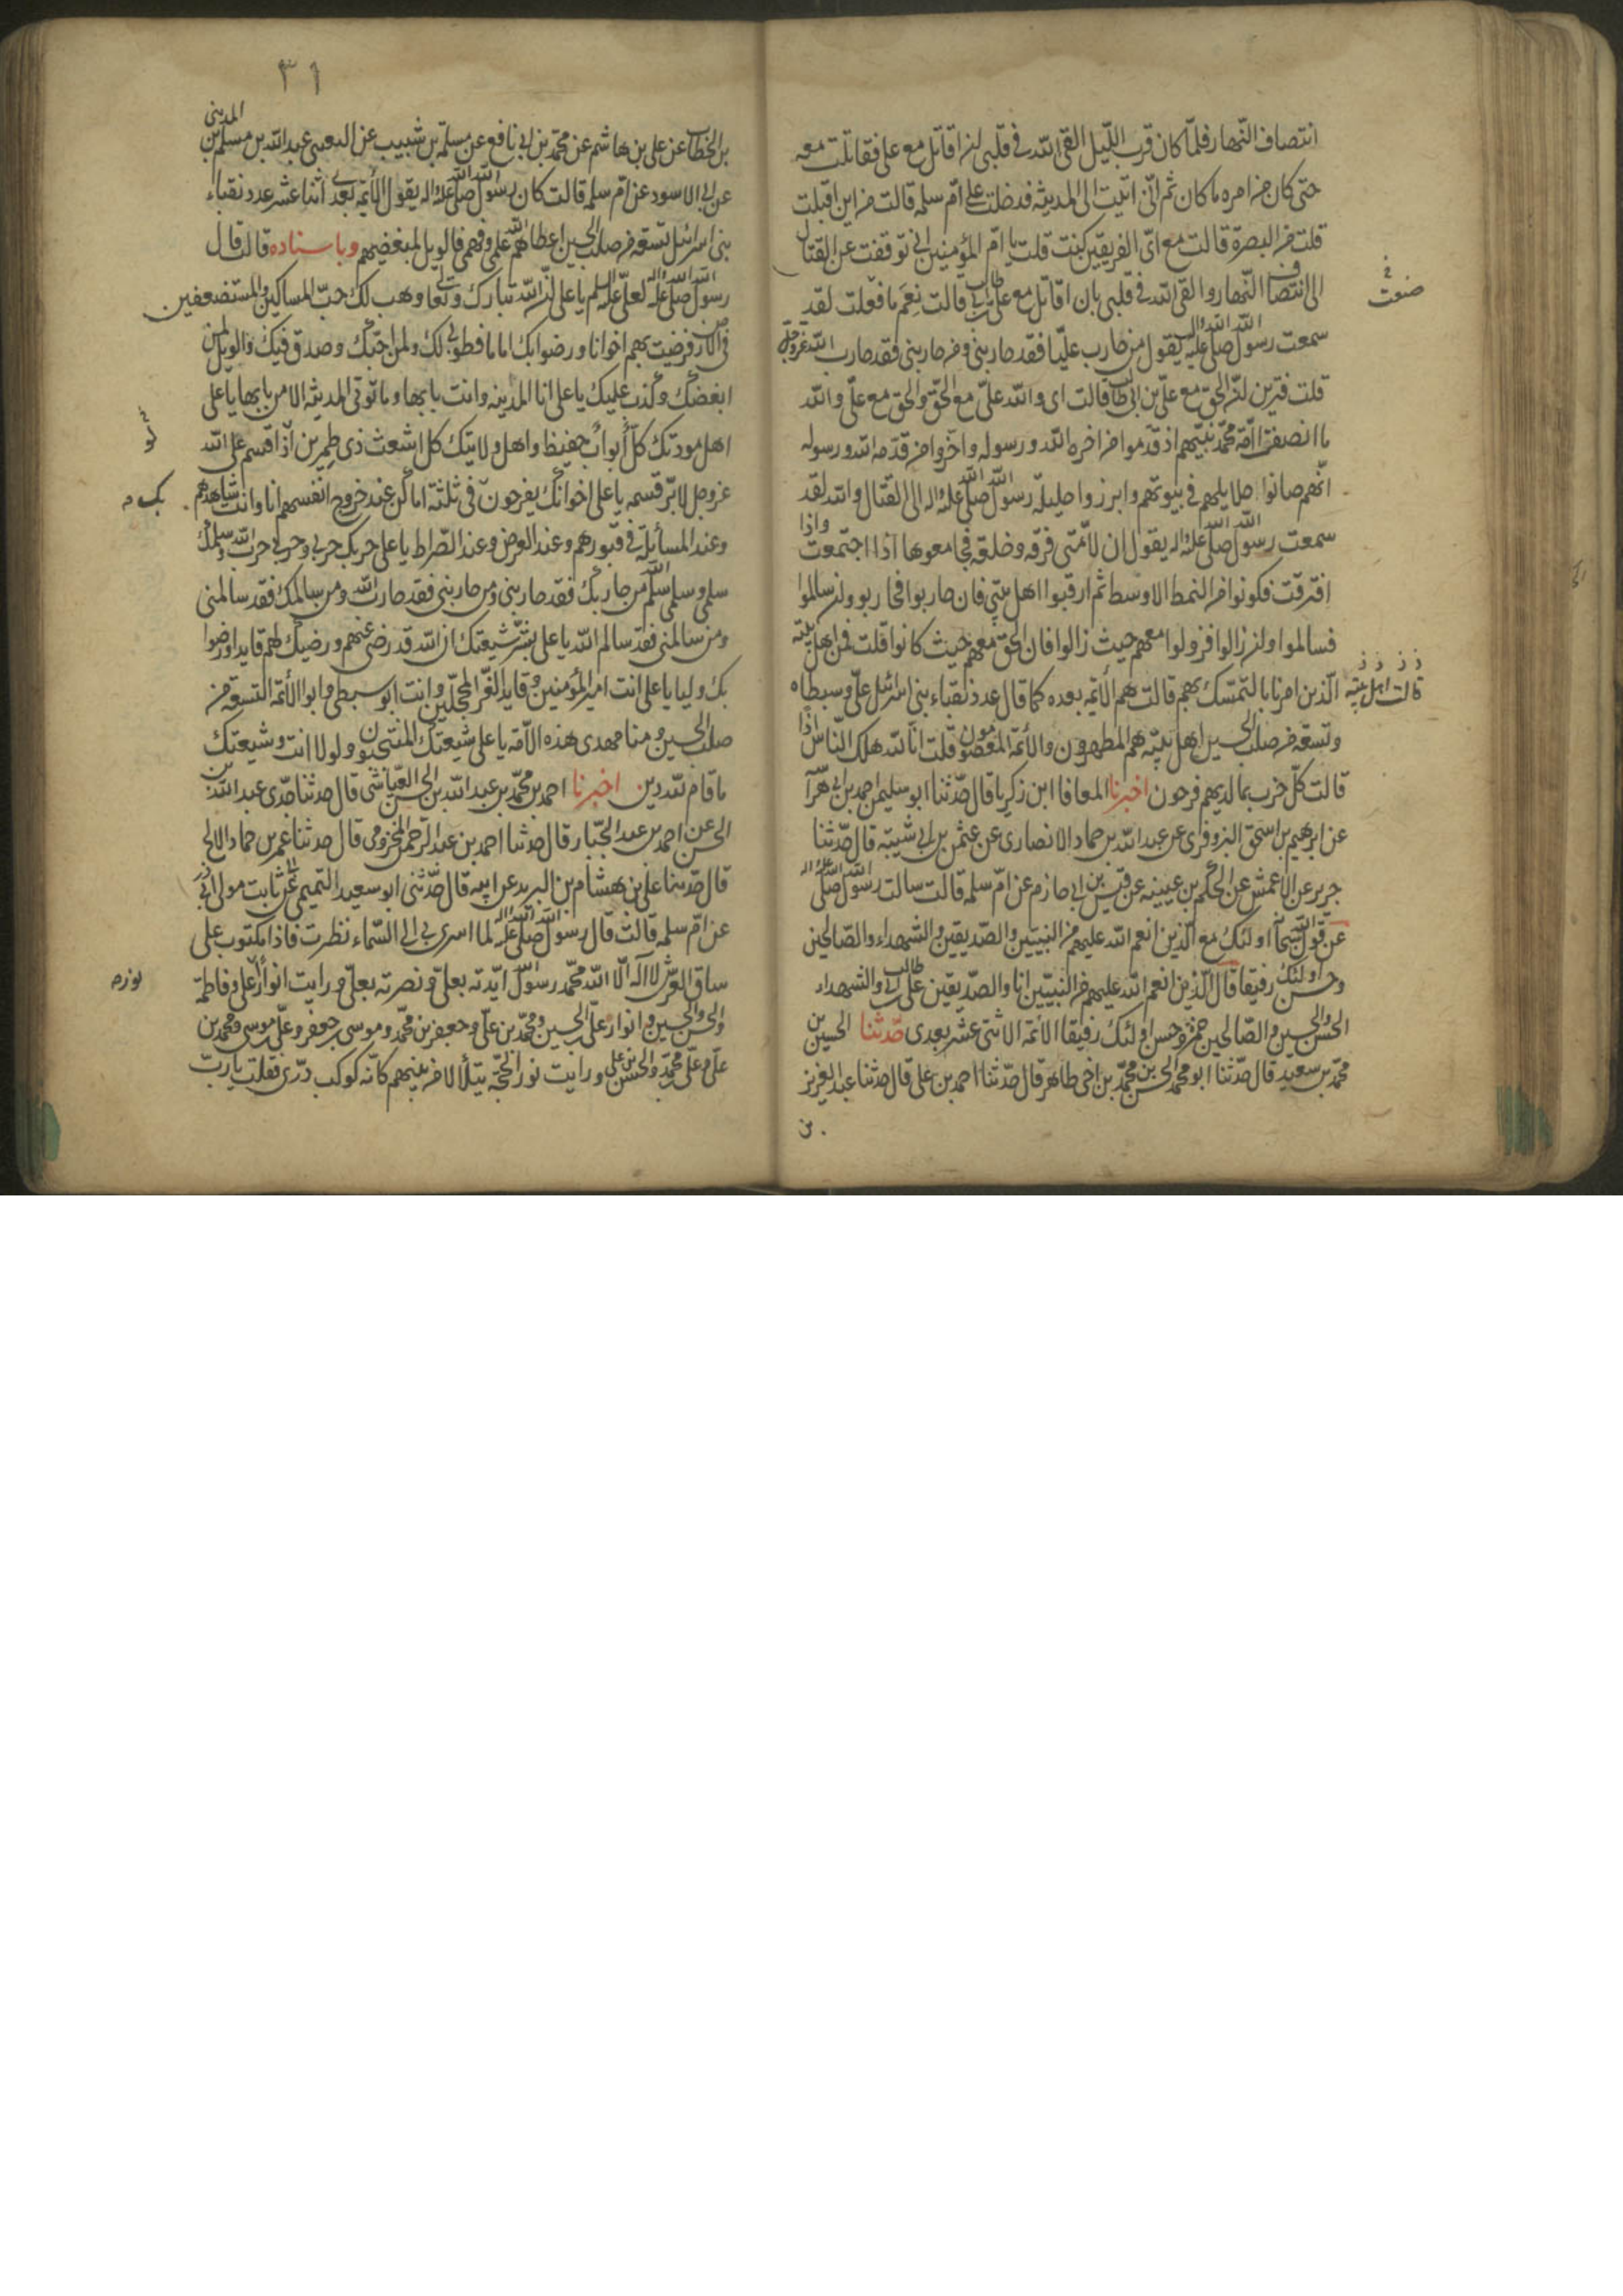 انتصاف النهار فلما كان قرب الليل القى الله فى قلبى ان اقاتل مع على فقاتلت معه
حتى كان من امره ما كان ثم انى اتيت الى المدينة فدخلت على ام سلمه قالت من اين اقبلت
قلت من البصرة قالت مع اى الفريقين كنت قلت يا ام المؤمنين انى توقفت عن القتال
الى انتصاف النهار والقى الله فى قلبى بان اقاتل مع على بن ابى طالب قالت نعم ما فعلت لقد
سمعت رسول الله صلى الله عليه واله يقول من حارب عليا فقد حاربنى ومن حاربنى فقد حارب الله عز وجل
قلت فترين ان الحق مع على بن ابى طالب قالت اى والله على مع الحق والحق مع على والله
ما انصف امة محمد نبيهم اذ قدموا من اخره الله ورسوله واخروا من قدمه الله ورسوله
انهم صانوا حلايلهم فى بيوتهم وابرزوا حليلة رسول الله صلى الله عليه واله الى القتال والله لقد
سمعت رسول الله صلى الله عليه واله يقول ان لامتى فرقه وخلعه فجامعوها اذا اجتمعت واذا
افترقت فكونوا من النمط الاوسط ثم ارقبوا اهل بيتى فان حاربوا فحاربوا وان سالموا
فسالموا وان زالوا فزولوا معهم حيث زالوا فان الحق معهم حيث كانوا قلت فمن اهل بيته
قالت اهل بيته الذين امرنا بالتمسك بهم قالت هم الائمة بعده كما قال عدد نقباء بنى اسرائيل على وسبطاه
وتسعة من صلب الحسين اهل بيته هم المطهرون والائمة المعصومون قلت انا لله هلك الناس اذا
قالت كل حزب بما لديهم فرحون اخبرنا المعافا ابن زكريا قال حدثنا ابو سليمن احمد بن ابى هراآ
عن ابرهيم بن اسحق النهروفرى عن عبد الله بن حماد الانصارى عن عثمن بن ابى شيبة قال حدثنا
جرير عن الاعمش عن الحكم بن عيينه عن قيس بن ابى حازم عن ام سلمه قالت سالت رسول الله صلى الله عليه واله
عن قول الله سبحانه اولئك مع الذين انعم الله عليهم من النبيين والصديقين والشهداء والصالحين
وحسن اولئك رفيقا قال الذين انعم الله عليهم من النبيين انا والصديقين على بن ابى طالب والشهداء
الحسن والحسين والصالحين حمزة وحسن اولئك رفيقا الائمة الاثنى عشر بعدى حدثنا الحسين بن
محمد بن سعيد قال حدثنا ابو محمد الحسن بن محمد بن اخى طاهر قال حدثنا احمد بن على قال حدثنا عبد العزيز
٣١
بن الخطاب عن على بن هاشم عن محمد بن ابى نافع عن مسلمة بن شبيب عن القعنبى عبد الله بن مسلم بن المدينى
عن ابى الاسود عن ام سلمه قالت كان رسول الله صلى الله عليه واله يقول الائمة بعدى اثنا عشر عدد نقباء
بنى اسرائيل تسعة من صلب الحسين اعطاهم الله علمى وفهمى فالويل لمبغضيهم وباسناده قالت قال
رسول الله صلى الله عليه واله لعلى عليه السلم يا على ان الله تبارك وتعالى وهب لك حب المساكين والمستضعفين
فى الارض فرضيت بهم اخوانا ورضوا بك اماما فطوبى لك ولمن احبك وصدق فيك والويل لمن
ابغضك وكذب عليك يا على انا المدينه وانت بابها وما تؤتى المدينة الا من بابها يا على
اهل مودتك كل أواب حفيظ واهل ولايتك كل اشعث ذى طمرين اذا اقسم على الله
عز وجل لابر قسمه يا على اخوانك يفرحون فى ثلثة اماكن عند خروج انفسهم انا وانت شاهدهم
وعند المسائلة فى قبورهم وعند العرض وعند الصراط يا على حربك حربى وحربى حرب الله وسلمك
سلمى وسلمى سلم الله من حاربك فقد حاربنى ومن حاربنى فقد حارب الله ومن سالمك فقد سالمنى
ومن سالمنى فقد سالم الله يا على بشر شيعتك ان الله قد رضى عنهم ورضيك لهم قايدا ورضوا
بك وليا يا على انت امير المؤمنين وقايد الغر المحجلين وانت ابو سبطى وابو الائمة التسعة من
صلب الحسين ومنا مهدى هذه الامة يا على شيعتك المنتجبون ولولا انت وشيعتك
ما قام لله دين اخبرنا احمد بن محمد بن عبد الله بن الحسن العياشى قال حدثنا جدى عبد الله بن
الحسن عن احمد بن عبد الجبار قال حدثنا احمد بن عبد الرحمن المخزومى قال حدثنا عمر بن حماد الابح
قال حدثنا على بن هشام بن البريد عن ابيه قال حدثنى ابو سعيد التميمى عن ثابت مولى ابى ذر
عن ام سلمه قالت قال رسول الله صلى الله عليه واله لما اسرى بى الى السماء نظرت فاذا مكتوب على
ساق العرش لا اله الا الله محمد رسول الله ايدته بعلى ونصرته بعلى ورايت انوار على وفاطمة
والحسن والحسين وانوار على بن الحسين ومحمد بن على وجعفر بن محمد وموسى بن جعفر وعلى بن موسى ومحمد بن
على وعلى بن محمد والحسن بن على ورايت نور الحجة يتلألأ من بينهم كانه كوكب درى فقلت يا رب